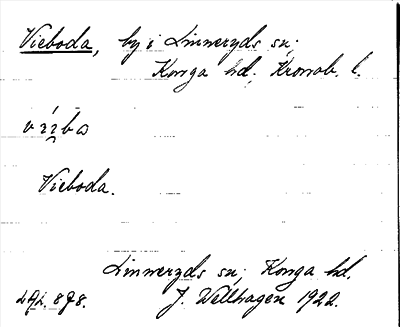 Vieboda, by i Linneryds sn;
Konga hd, Kronob. l.
Vieboda.
Linneryds sn; Konga hd.
J. Wellhagen 1922.